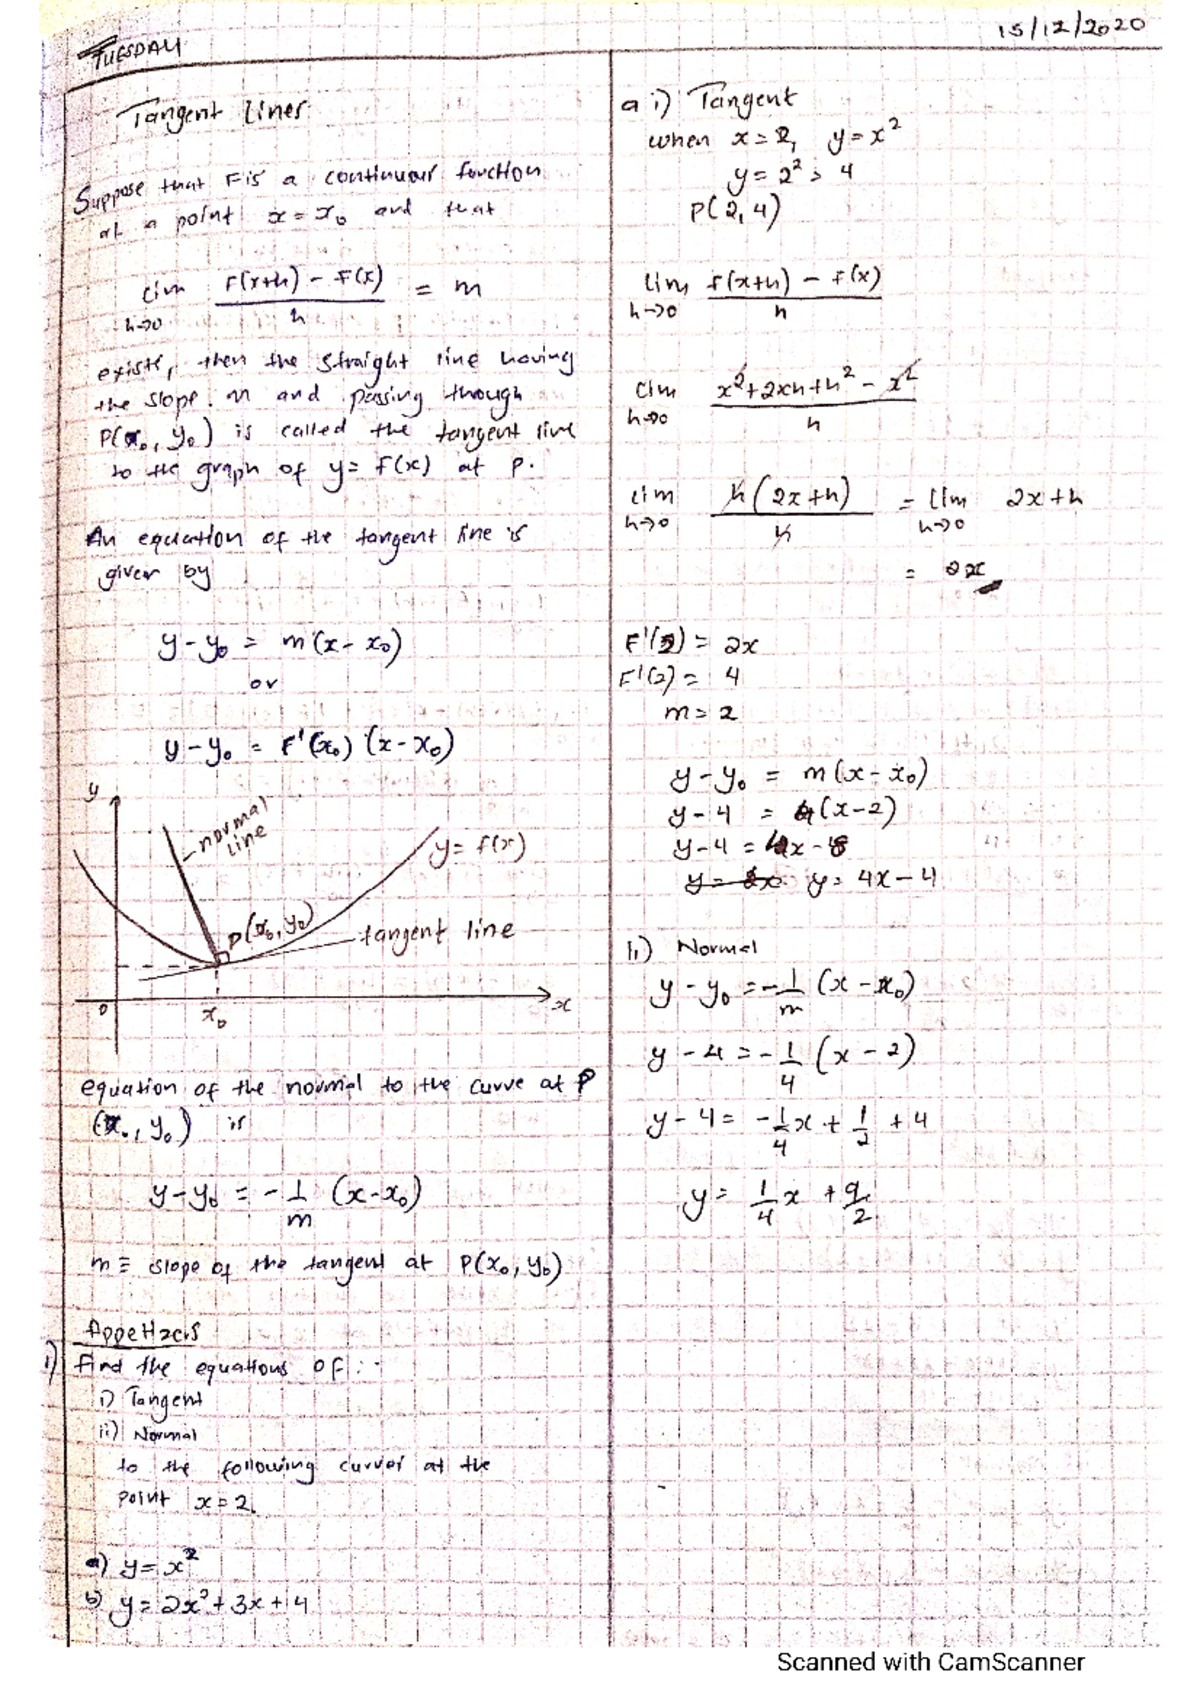 TUESDAY
15/12/2020
Tangent Lines
Suppose that F is a continuous function
at a point x = x₀ and that
lim F(x+h) - F(x) = m
h→0 h
exists, then the straight line having
the slope m and passing through
P(x₀, y₀) is called the tangent line
to the graph of y = F(x) at P.
An equation of the tangent line is
given by
y - y₀ = m(x - x₀)
or
y - y₀ = F'(x₀) (x - x₀)
y
normal
line
y = f(x)
P(x₀, y₀)
tangent line
0
x₀
x
equation of the normal to the curve at P
(x₀, y₀) is
y - y₀ = - 1/m (x - x₀)
m ≡ slope of the tangent at P(x₀, y₀)
1) Find the equations of :-
i) Tangent
ii) Normal
to the following curves at the
point x = 2.
a) y = x²
b) y = 2x² + 3x + 4
a i) Tangent
when x = 2, y = x²
y = 2² = 4
P(2, 4)
lim f(x+h) - f(x)
h→0 h
lim x² + 2xh + h² - x²
h→0 h
lim h(2x+h) = lim 2x + h
h→0 h h→0
= 2x
F'(2) = 2x
F'(2) = 4
m = 2
y - y₀ = m(x - x₀)
y - 4 = 4(x - 2)
y - 4 = 4x - 8
y = 4x - 4
ii) Normal
y - y₀ = - 1/m (x - x₀)
y - 4 = - 1/4 (x - 2)
y - 4 = - 1/4 x + 1/2 + 4
y = 1/4 x + 9/2
Scanned with CamScanner